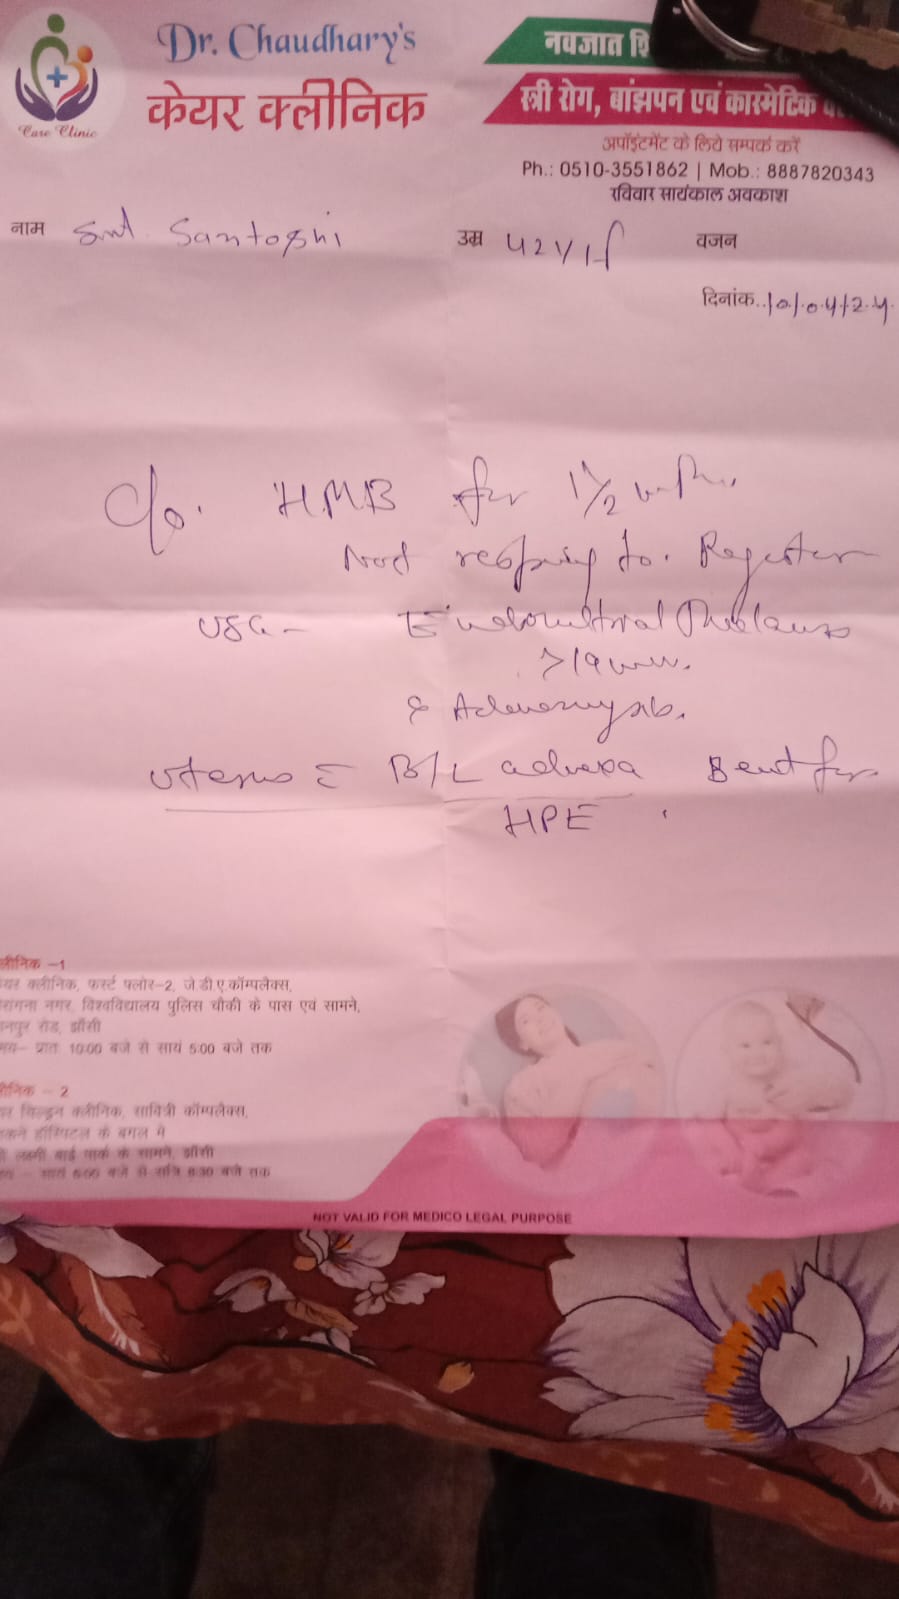 Dr. Chaudhary's
केयर क्लीनिक
Care Clinic
नवजात
स्त्री रोग, बांझपन एवं कास्मेटिक
अपॉइंटमेंट के लिये सम्पर्क करें
Ph.: 0510-3551862 | Mob.: 8887820343
रविवार सायंकाल अवकाश
नाम Smt. Santoshi उम्र 42Y/F वजन
दिनांक..10/04/24
C/o. HMB for 1½
Not to. Regester
USG - Endometrial Thickness
>19mm.
& Adenomyosis.
Uterus c̄ B/L adnexa Sent for
HPE.
क्लीनिक -1
केयर क्लीनिक, फर्स्ट फ्लोर-2, जे.डी.ए.कॉम्पलैक्स,
नगर, विश्वविद्यालय पुलिस चौकी के पास एवं सामने,
रोड, झाँसी
समय- प्रातः 10:00 बजे से सायं 5:00 बजे तक
क्लीनिक - 2
चिल्ड्रन क्लीनिक, सावित्री कॉम्पलैक्स,
हॉस्पिटल के बगल में
लक्ष्मी बाई पार्क के सामने, झाँसी
समय - सायं 6:00 बजे से रात्रि 8:30 बजे तक
NOT VALID FOR MEDICO LEGAL PURPOSE